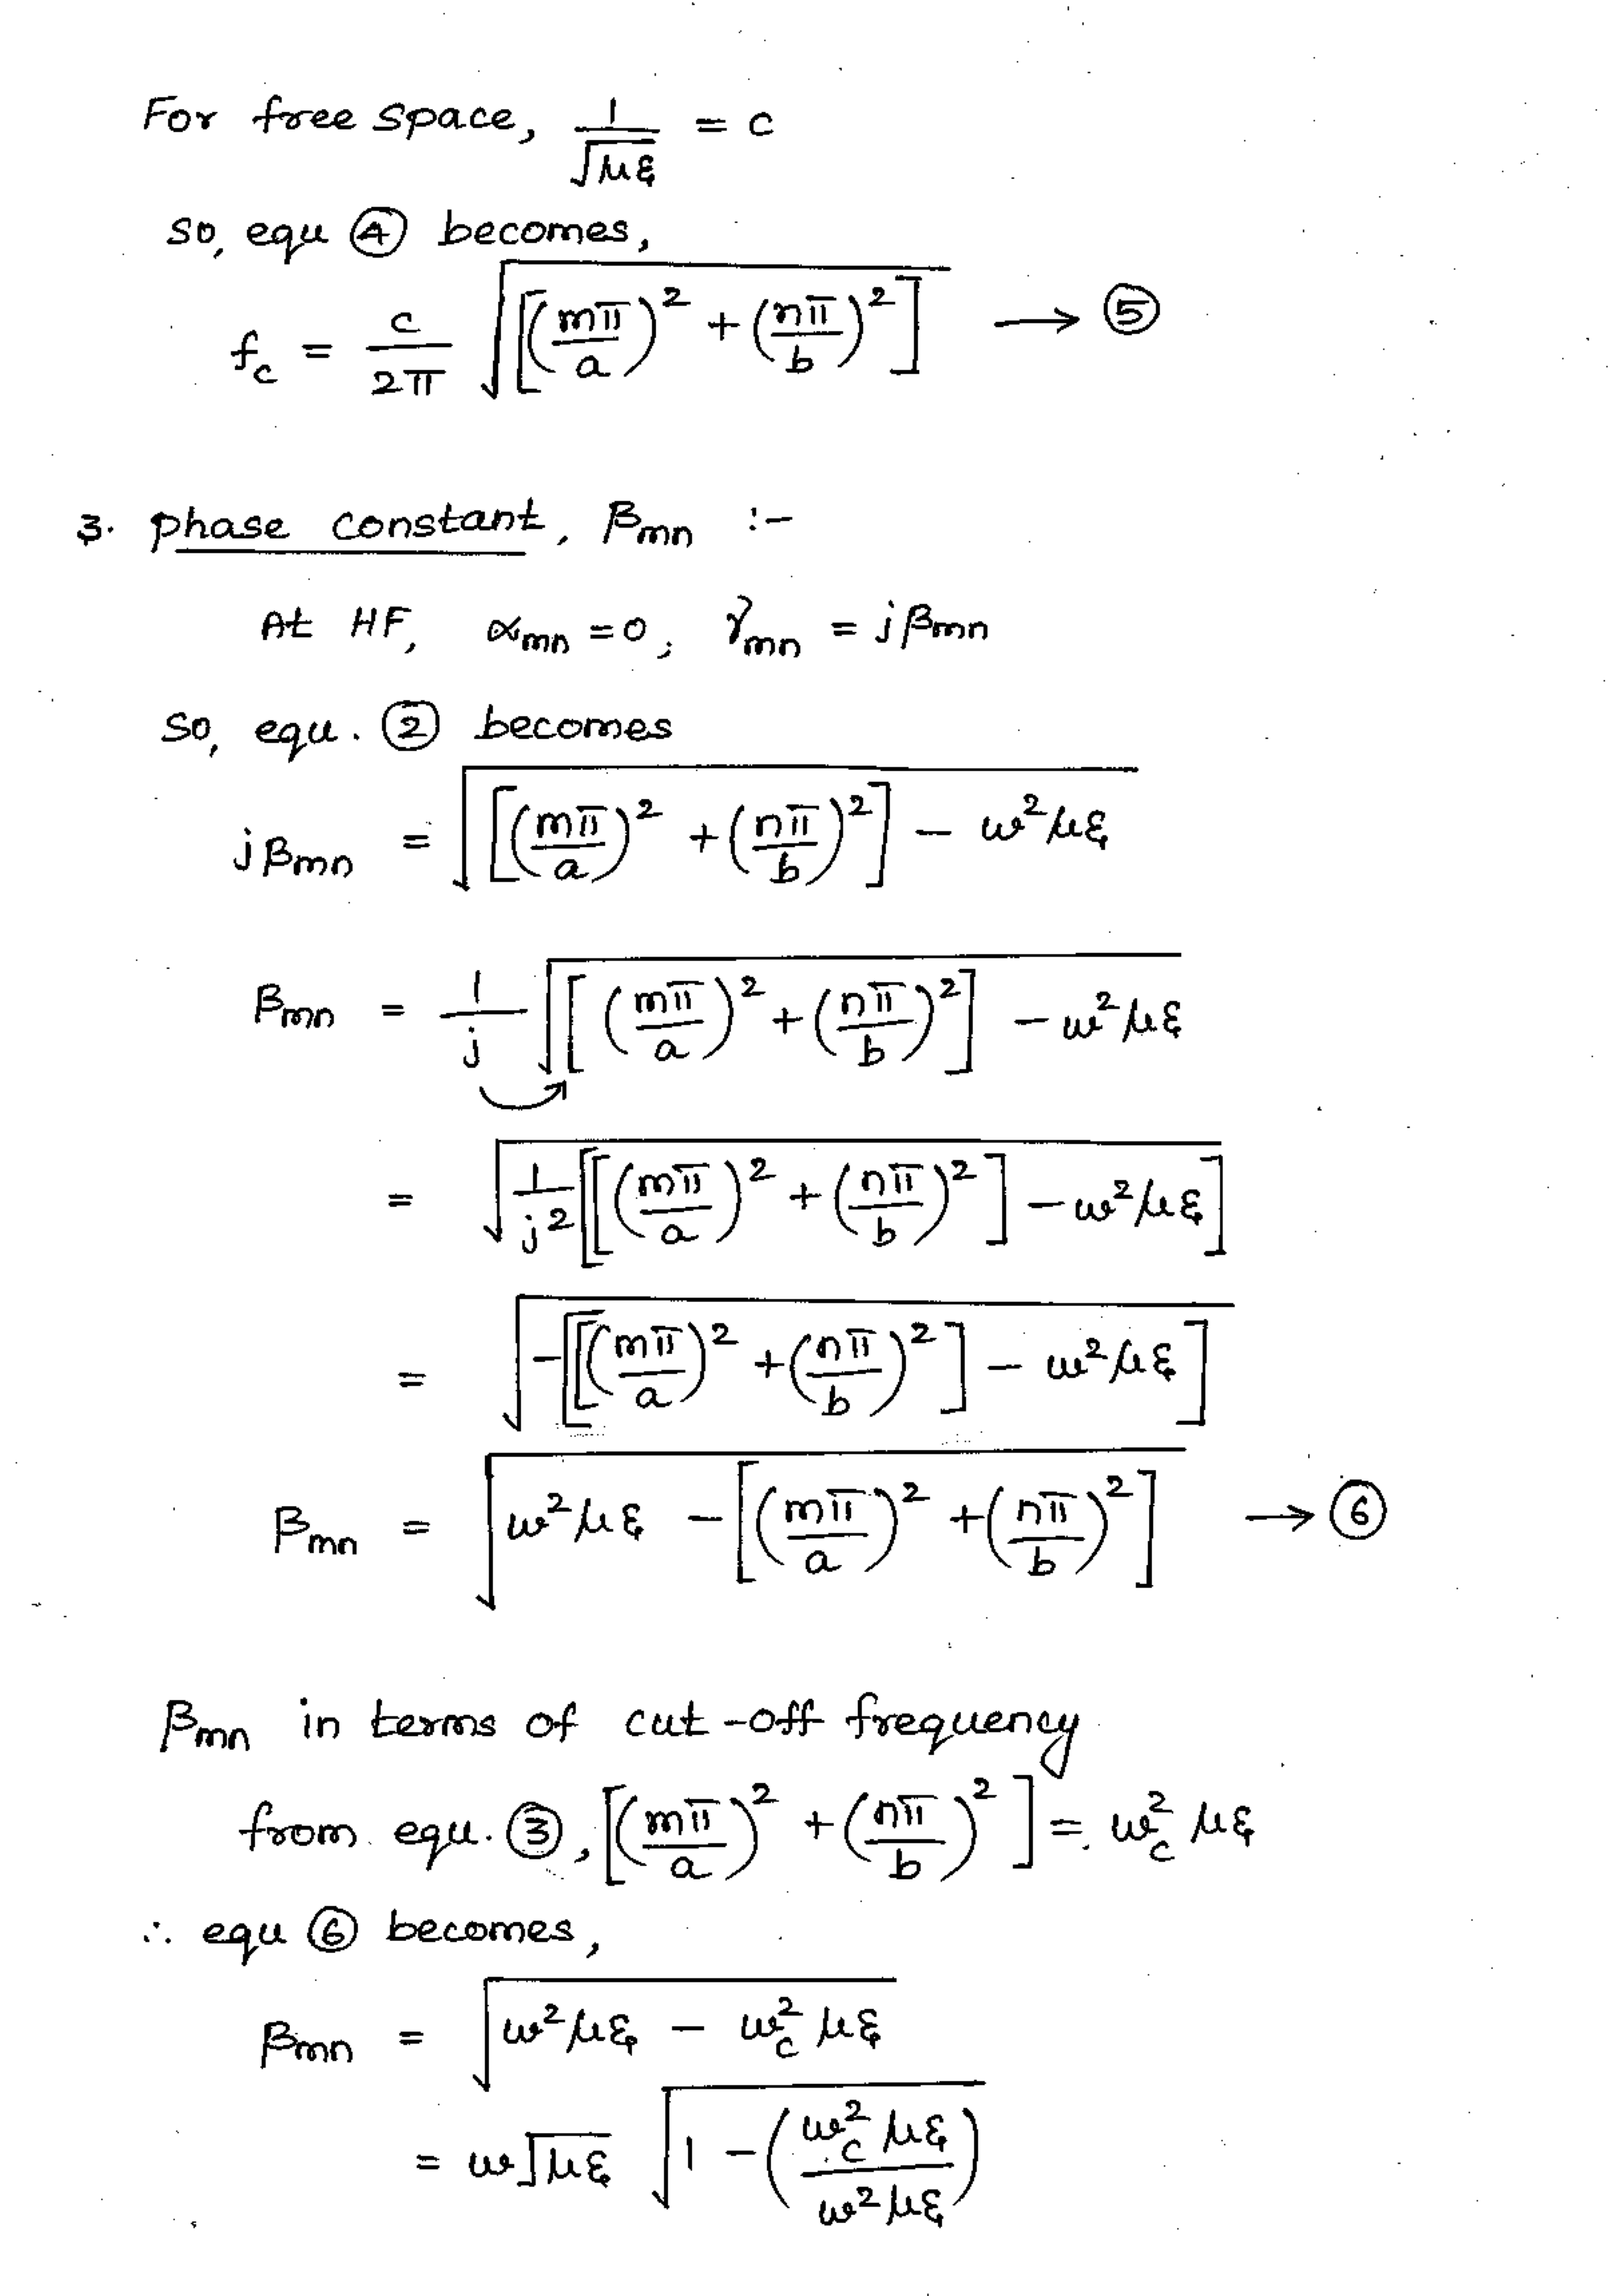 For free space, 1/√με = c
so, equ ④ becomes,
f_c = c/2π √[(mπ/a)² + (nπ/b)²] → ⑤
3. phase constant, β_mn :-
At HF, α_mn = 0, γ_mn = jβ_mn
so, equ. ② becomes
jβ_mn = √([(mπ/a)² + (nπ/b)²] - ω²με)
β_mn = 1/j √([(mπ/a)² + (nπ/b)²] - ω²με)
= √(1/j² [[(mπ/a)² + (nπ/b)²] - ω²με])
= √(-[[(mπ/a)² + (nπ/b)²] - ω²με])
β_mn = √(ω²με - [(mπ/a)² + (nπ/b)²]) → ⑥
β_mn in terms of cut-off frequency
from equ. ③, [(mπ/a)² + (nπ/b)²] = ω_c² με
∴ equ ⑥ becomes,
β_mn = √(ω²με - ω_c² με)
= ω√με √(1 - (ω_c² με / ω²με))